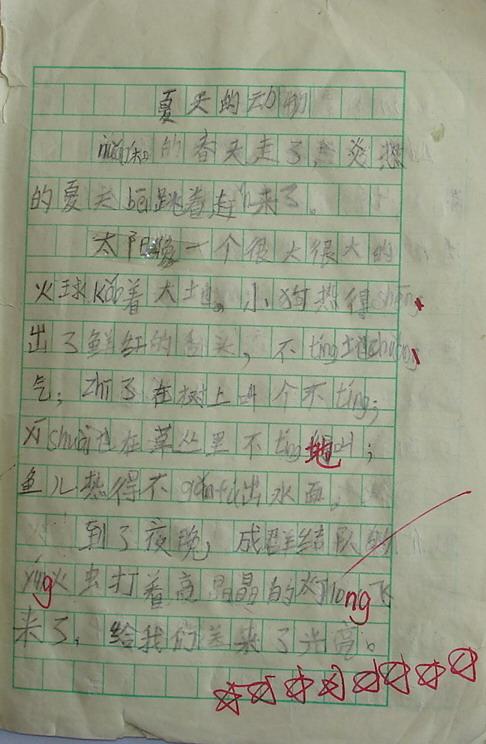 夏天的动物
nuǎn和的春天走了，炎热
的夏天bèng跳着赶来了。
太阳像一个很大很大的
火球kǎo着大地。小狗热得shēn
出了鲜红的舌头，不tíng地chuǎn
气；zhī了在树上叫个不tíng；
xī shuài也在草丛里不tíng地叫；
鱼儿热得不gǎn出水面。
到了夜晚，成群结队的
yíng火虫打着亮晶晶的灯long飞
来了，给我们送来了光亮。